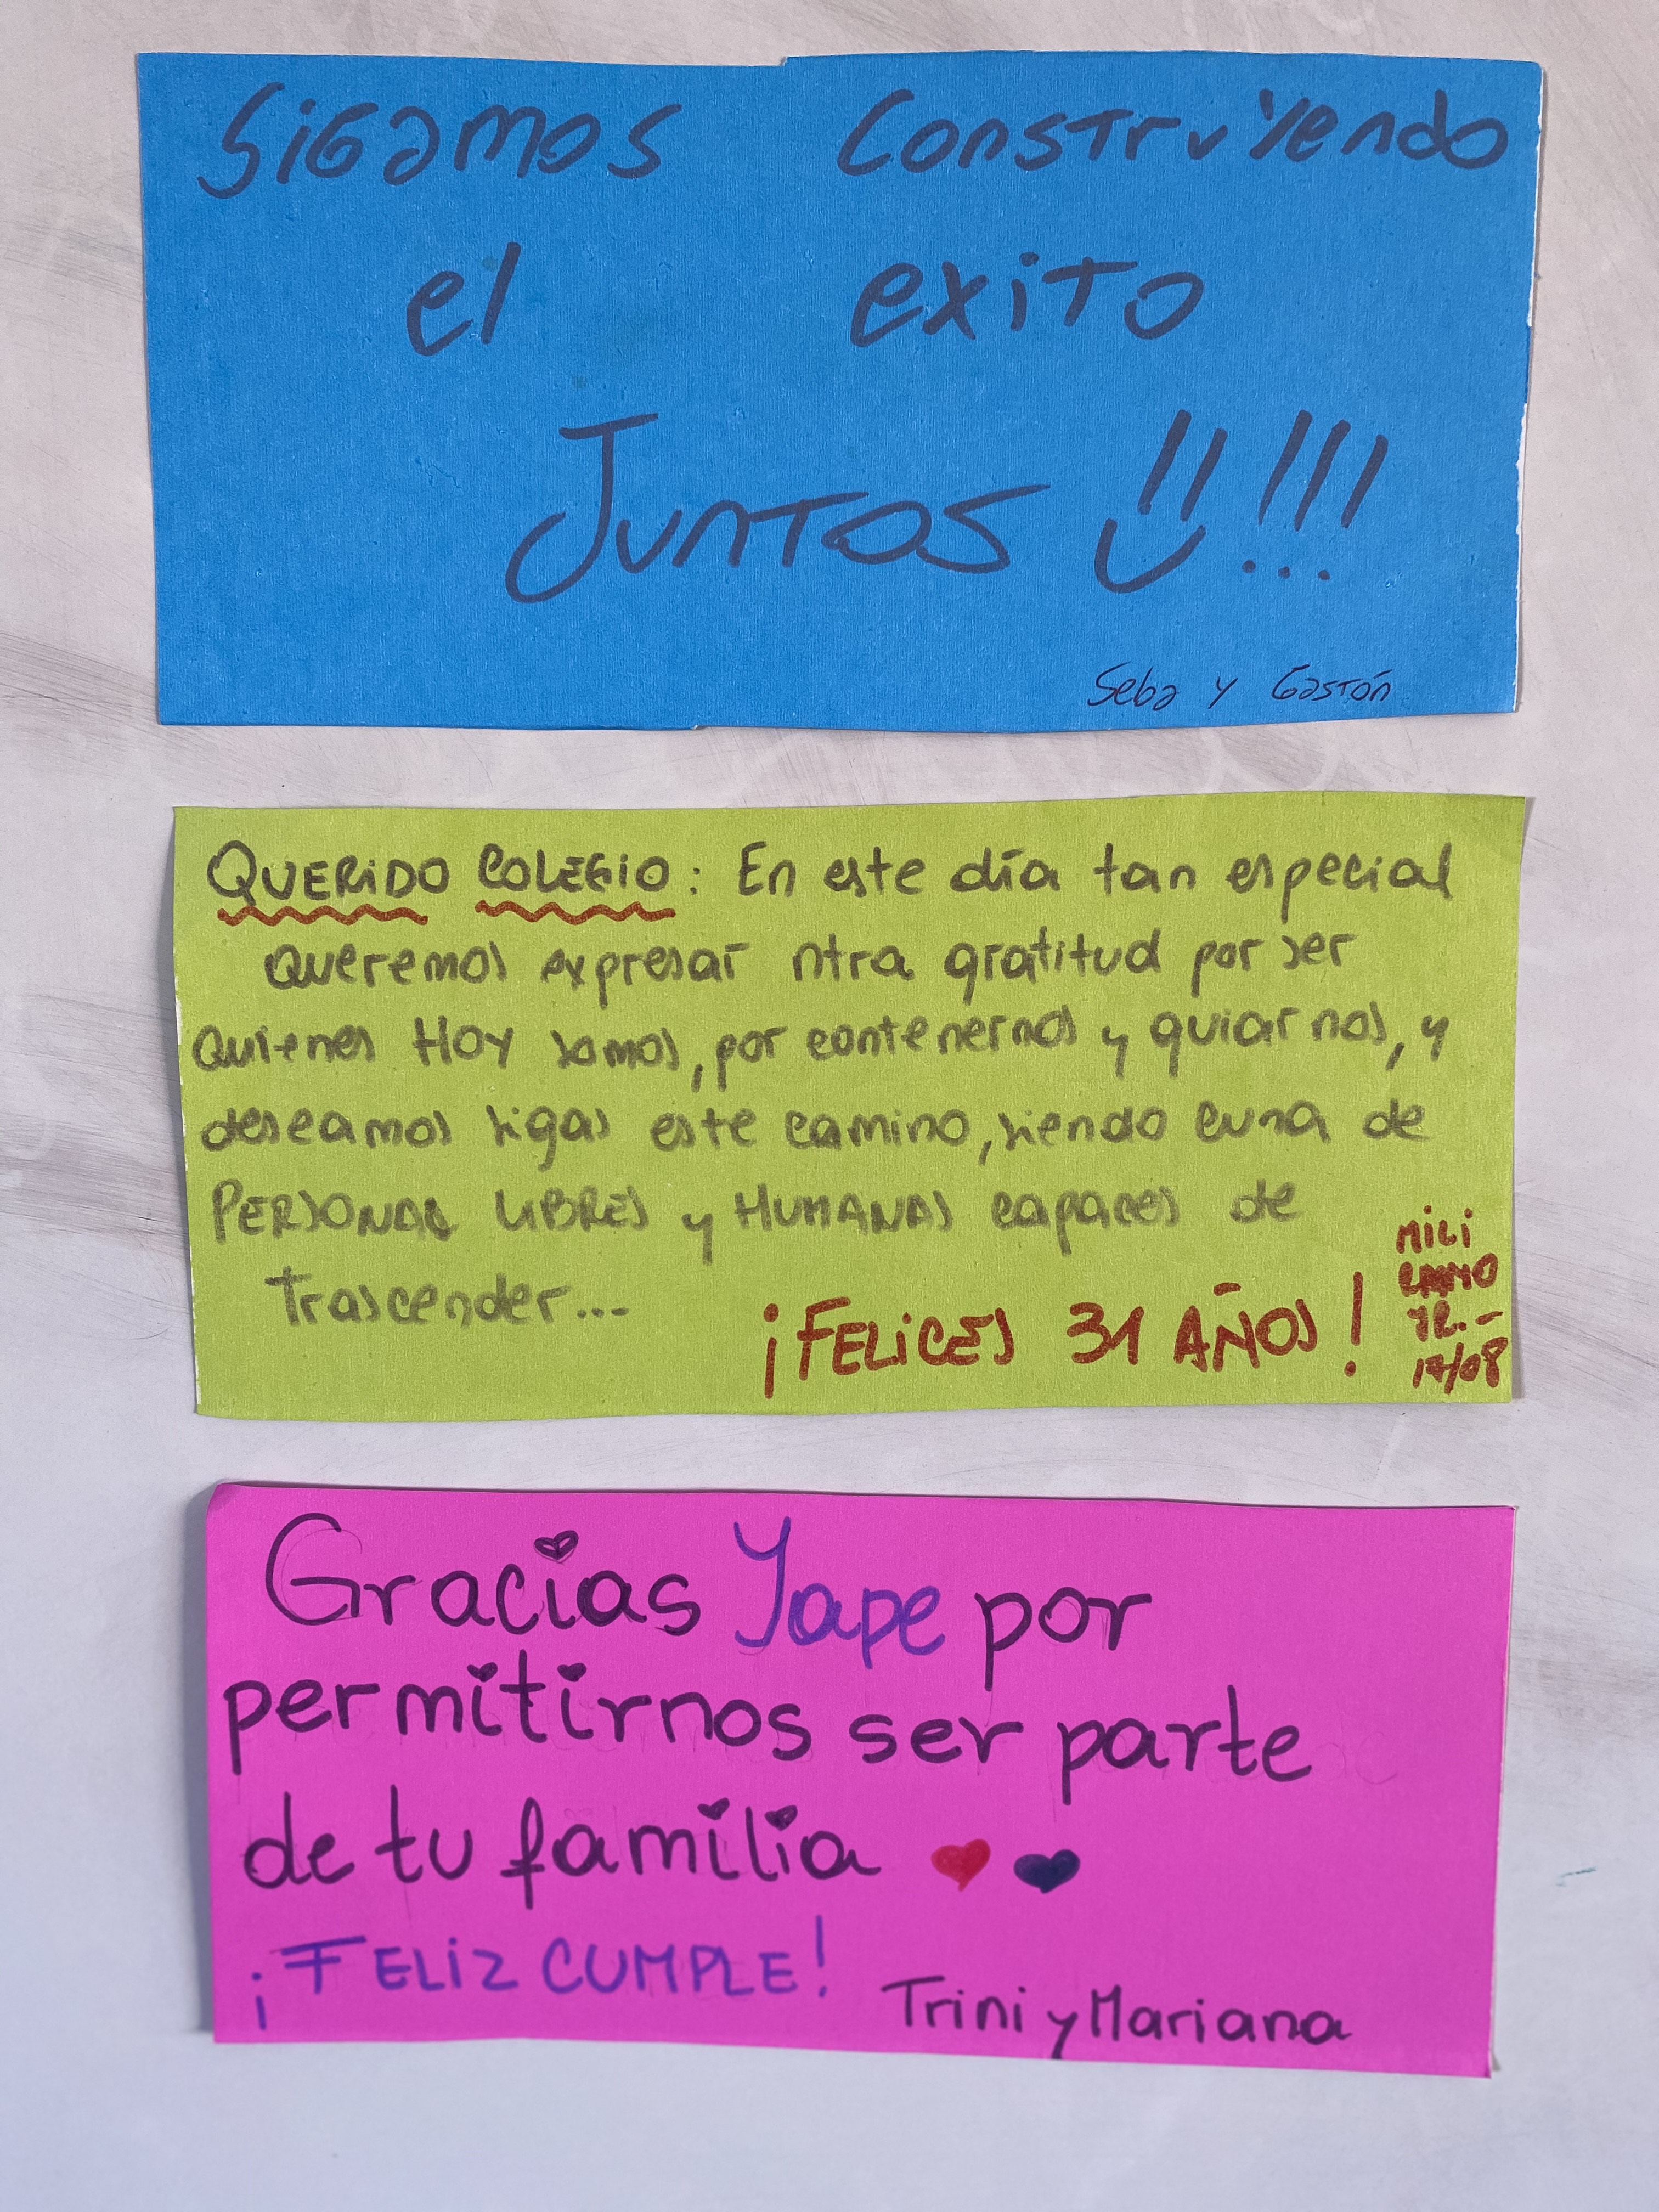 SiGamos Construyendo
el exito
Juntos !!!
Seba y Gastón
QUERIDO COLEGIO: En este día tan especial
queremos expresar ntra gratitud por ser
quienes HOY somos, por contenernos y guiarnos, y
deseamos sigas este camino, siendo cuna de
PERSONAS LIBRES y HUMANAS capaces de
trascender...
¡FELICES 31 AÑOS!
MILI
17/08
Gracias Yape por
permitirnos ser parte
de tu familia
¡FELIZ CUMPLE!
Trini y Mariana